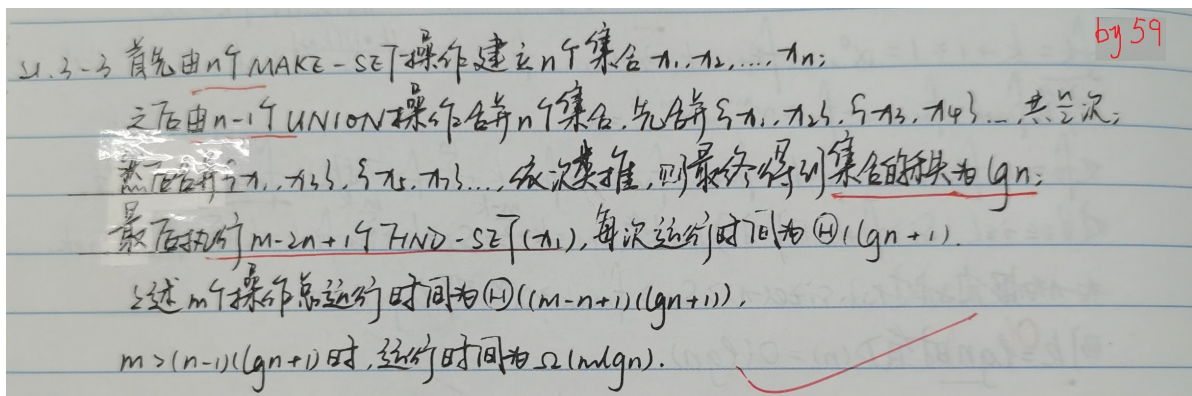 by 59
21.3-3 首先由n个MAKE-SET操作建立n个集合x₁,x₂,...,xₙ;
之后由n-1个UNION操作合并n个集合,先合并{x₁,x₂},{x₃,x₄}...,共n/2次;
然后合并{x₁,x₃},{x₅,x₇}...,依次类推,则最终得到集合的秩为lgn;
最后执行m-2n+1个FIND-SET(x₁),每次运行时间为Θ(lgn+1).
上述m个操作总运行时间为Θ((m-n+1)(lgn+1)),
m>(n-1)(lgn+1)时,运行时间为Ω(mlgn).